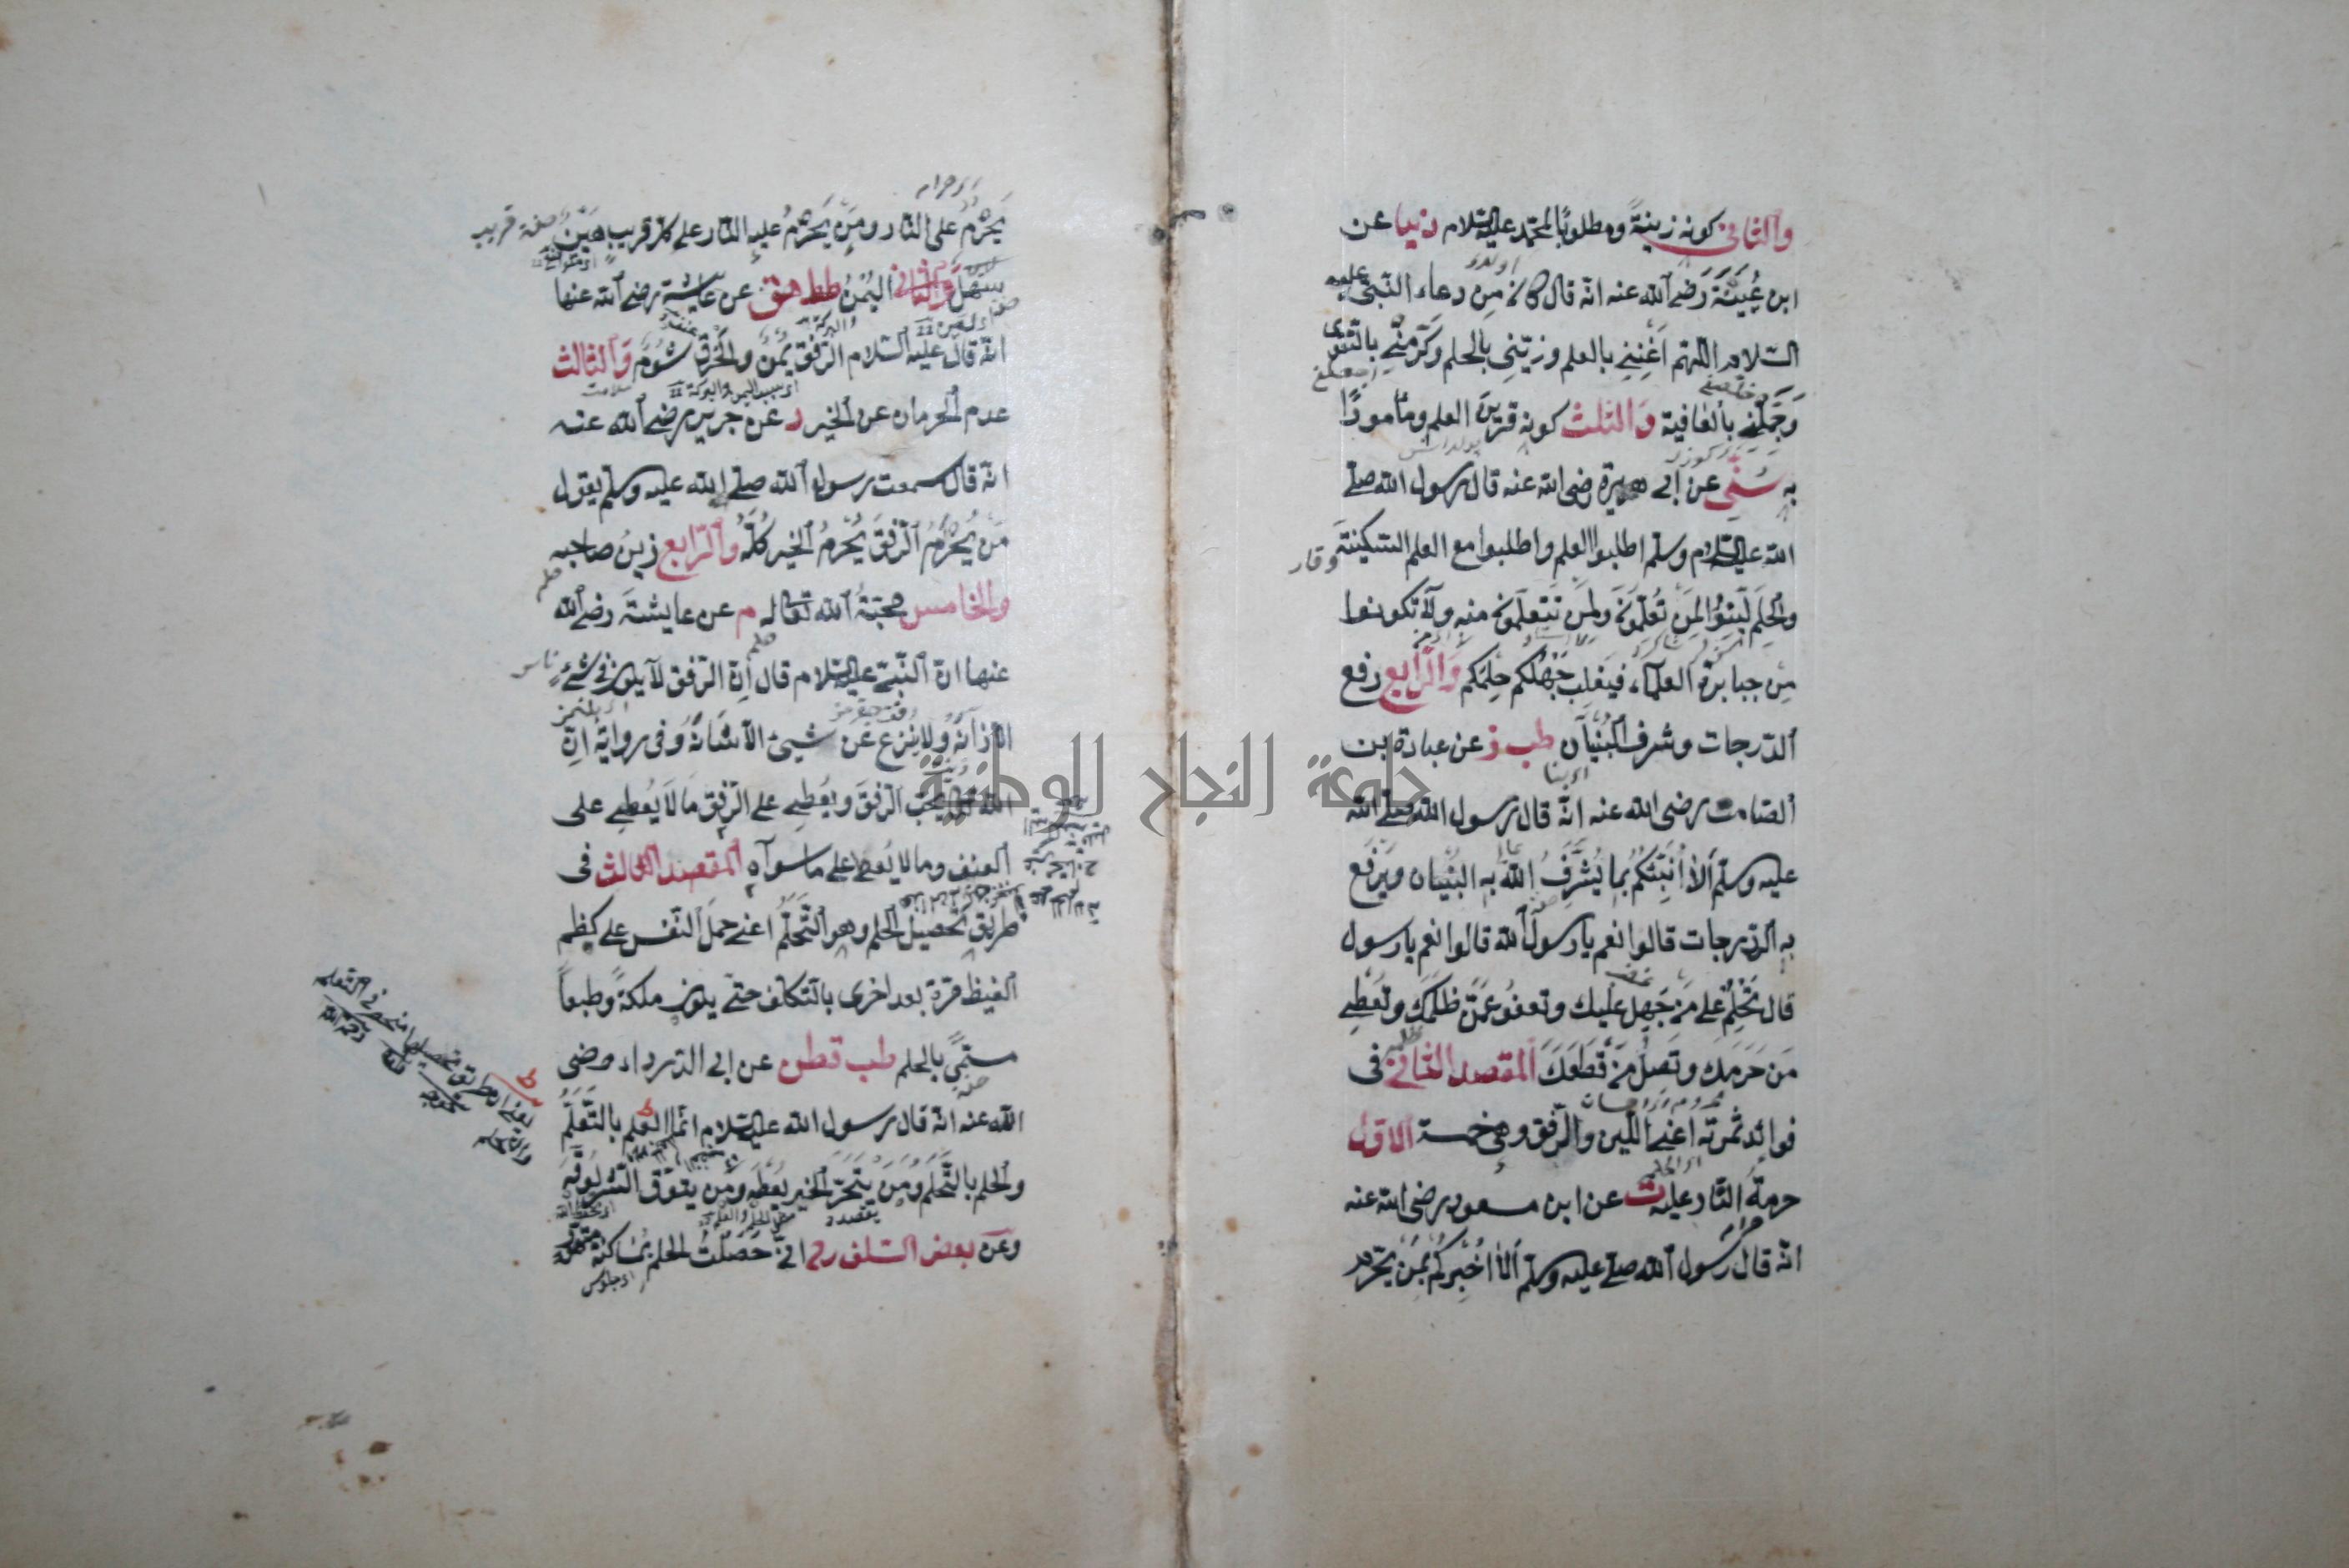 والثانى كونه زينةً ومطلوبًا لمحمّد عليه السّلام دنيا عن
ابن عُيينَةَ رَضَى الله عنه انّه قال كان من دعاء النّبىّ عليه
السّلام اللّهمّ اَغْنِنِى بالعلم وزيّنّى بالحلم وكرّمنى بالتّقوى
وَجَمِّلنى بالعافية وَالثّلث كونه قرين العلم ومأمورًا
به سُنّى عن ابى هريرة رضى الله عنه قال رسول الله صلّى
الله عليه السّلام وسلّم اطلبوا العلم واطلبوا مع العلم السّكينة
وقار
والحِلم لَيّنُوا لِمَنْ تُعَلِّمُونَ ولِمَنْ تَتعلّمون منه ولا تكونوا
مِن جبابرة العلماء فيَغلِب جَهْلُكم حِلمَكم وَالرّابع رفع
الدّرجات وشرف البُنيَان طب ز عن عبادة بن
الصّامت رضى الله عنه انّه قال رسول الله صلّى الله
عليه وسلّم ألاَ اُنَبِّئُكُمْ بما يُشَرِّفُ اللهُ به البُنْيان ويَرْفَع
به الدّرجات قالوا نعم يا رسول الله قالوا نعم يا رسول
قال تَحْلِمُ على مَن جَهِل عليك وتعفُو عمّن ظَلَمَكَ وتُعْطِى
مَن حَرَمَك وتَصِلُ مَن قَطَعَكَ المقصد الثّانى فى
فوائد ثمرته اعنى اللّين والرّفق وهى خمسة الاوّل
حرمةُ النّار عليه ت عن ابن مسعود رضى الله عنه
انّه قال رسول الله صلّى عليه وسلّم ألاَ اُخْبِركُم بمَن يَحْرُم
يَحْرُم على النّار ومَن يَحْرُمُ عليه النّار على كلّ قريبٍ هَيّنٍ
صفة قريب
سَهْلٍ وَالثّانى اليُمْنُ طط هق عن عايشة رضى الله عنها
انّه قال عليه السّلام الرّفق يُمْنٌ والخُرْق شُؤمٌ وَالثالث
اى بسبب اليمن والبركة
عدم الحرمان عن الخير د عن جرير رضى الله عنه
انّه قال سمعت رسول الله صلّى الله عليه وسلّم يقول
مَن يُحْرَمُ الرّفقَ يُحْرَمُ الخير كُلَّهُ والرّابع زينُ صاحبه
والخامس محبّةُ الله تعالى م عن عايشة رضى الله
عنها انّ النّبىّ عليه السّلام قال اِنّ الرّفق لا يكون فى شئٍ
الاّ زَانَهُ ولا يُنزع عن شيئ الاّ شَانَهُ وفى رواية انّ
الله يحبّ الرّفقَ ويُعْطِى على الرّفق ما لا يُعْطِى على
العنف وما لا يعطى على ما سواه المقصد الثالث فى
طريق تحصيل الحلم وهو التَّحَلُّم اعنى حملَ النّفس على كظم
الغيظ مرّة بعد اخرى بالتّكلّف حتّى يكون ملكةً وطبعاً
مسمّىً بالحلم طب قطن عن ابى الدّرداء رضى
الله عنه انّه قال رسول الله عليه السّلام انّما العلم بالتّعلّم
والحلم بالتَّحَلُّم ومَن يَتَحَرَّ الخير يُعطَه ومَن يتوَقّ الشّرّ يُوقَه
وعن بعض السّلف انّى حَصّلتُ الحلم بمُساكنة
اى جلوس
جامعة النجاح الوطنية